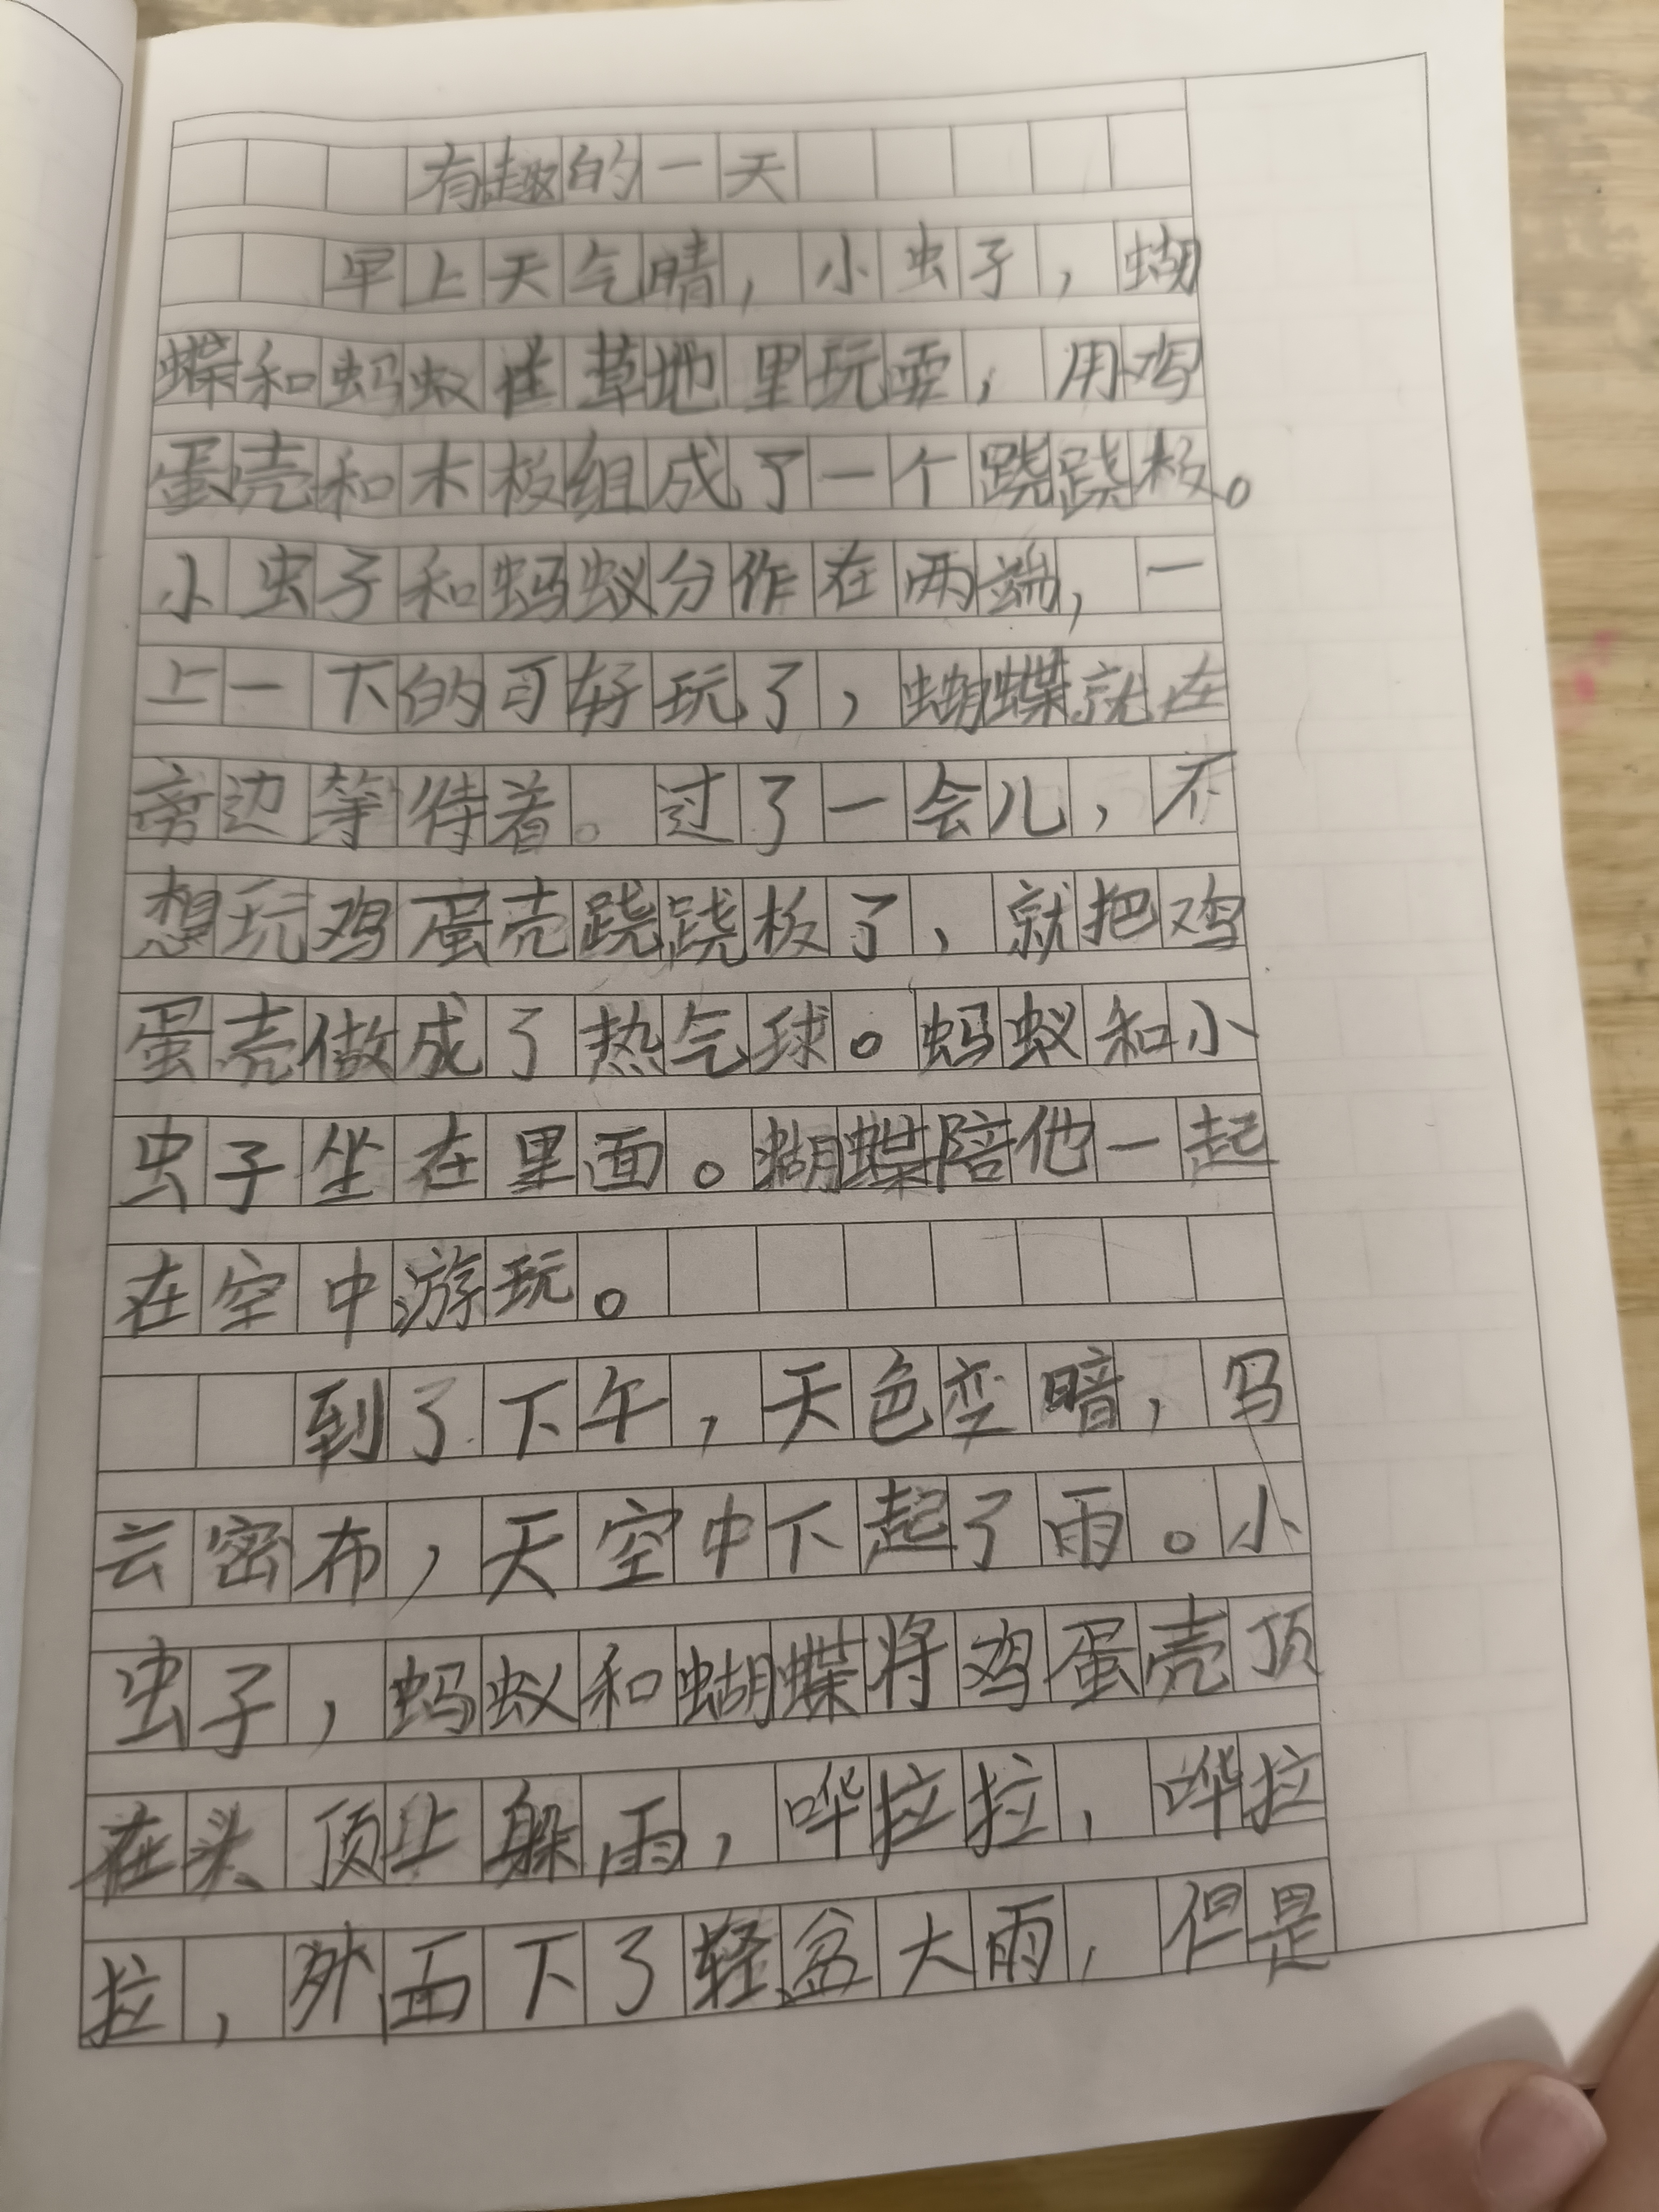 有趣的一天
早上天气晴，小虫子，蝴
蝶和蚂蚁在草地里玩耍，用鸡
蛋壳和木板组成了一个跷跷板。
小虫子和蚂蚁分作在两端，一
上一下的可好玩了，蝴蝶就在
旁边等待着。过了一会儿，不
想玩鸡蛋壳跷跷板了，就把鸡
蛋壳做成了热气球。蚂蚁和小
虫子坐在里面。蝴蝶陪他一起
在空中游玩。
到了下午，天色变暗，
云密布，天空中下起了雨。小
虫子，蚂蚁和蝴蝶将鸡蛋壳顶
在头顶上躲雨，哗拉拉，哗拉
拉，外面下了轻盆大雨，但是